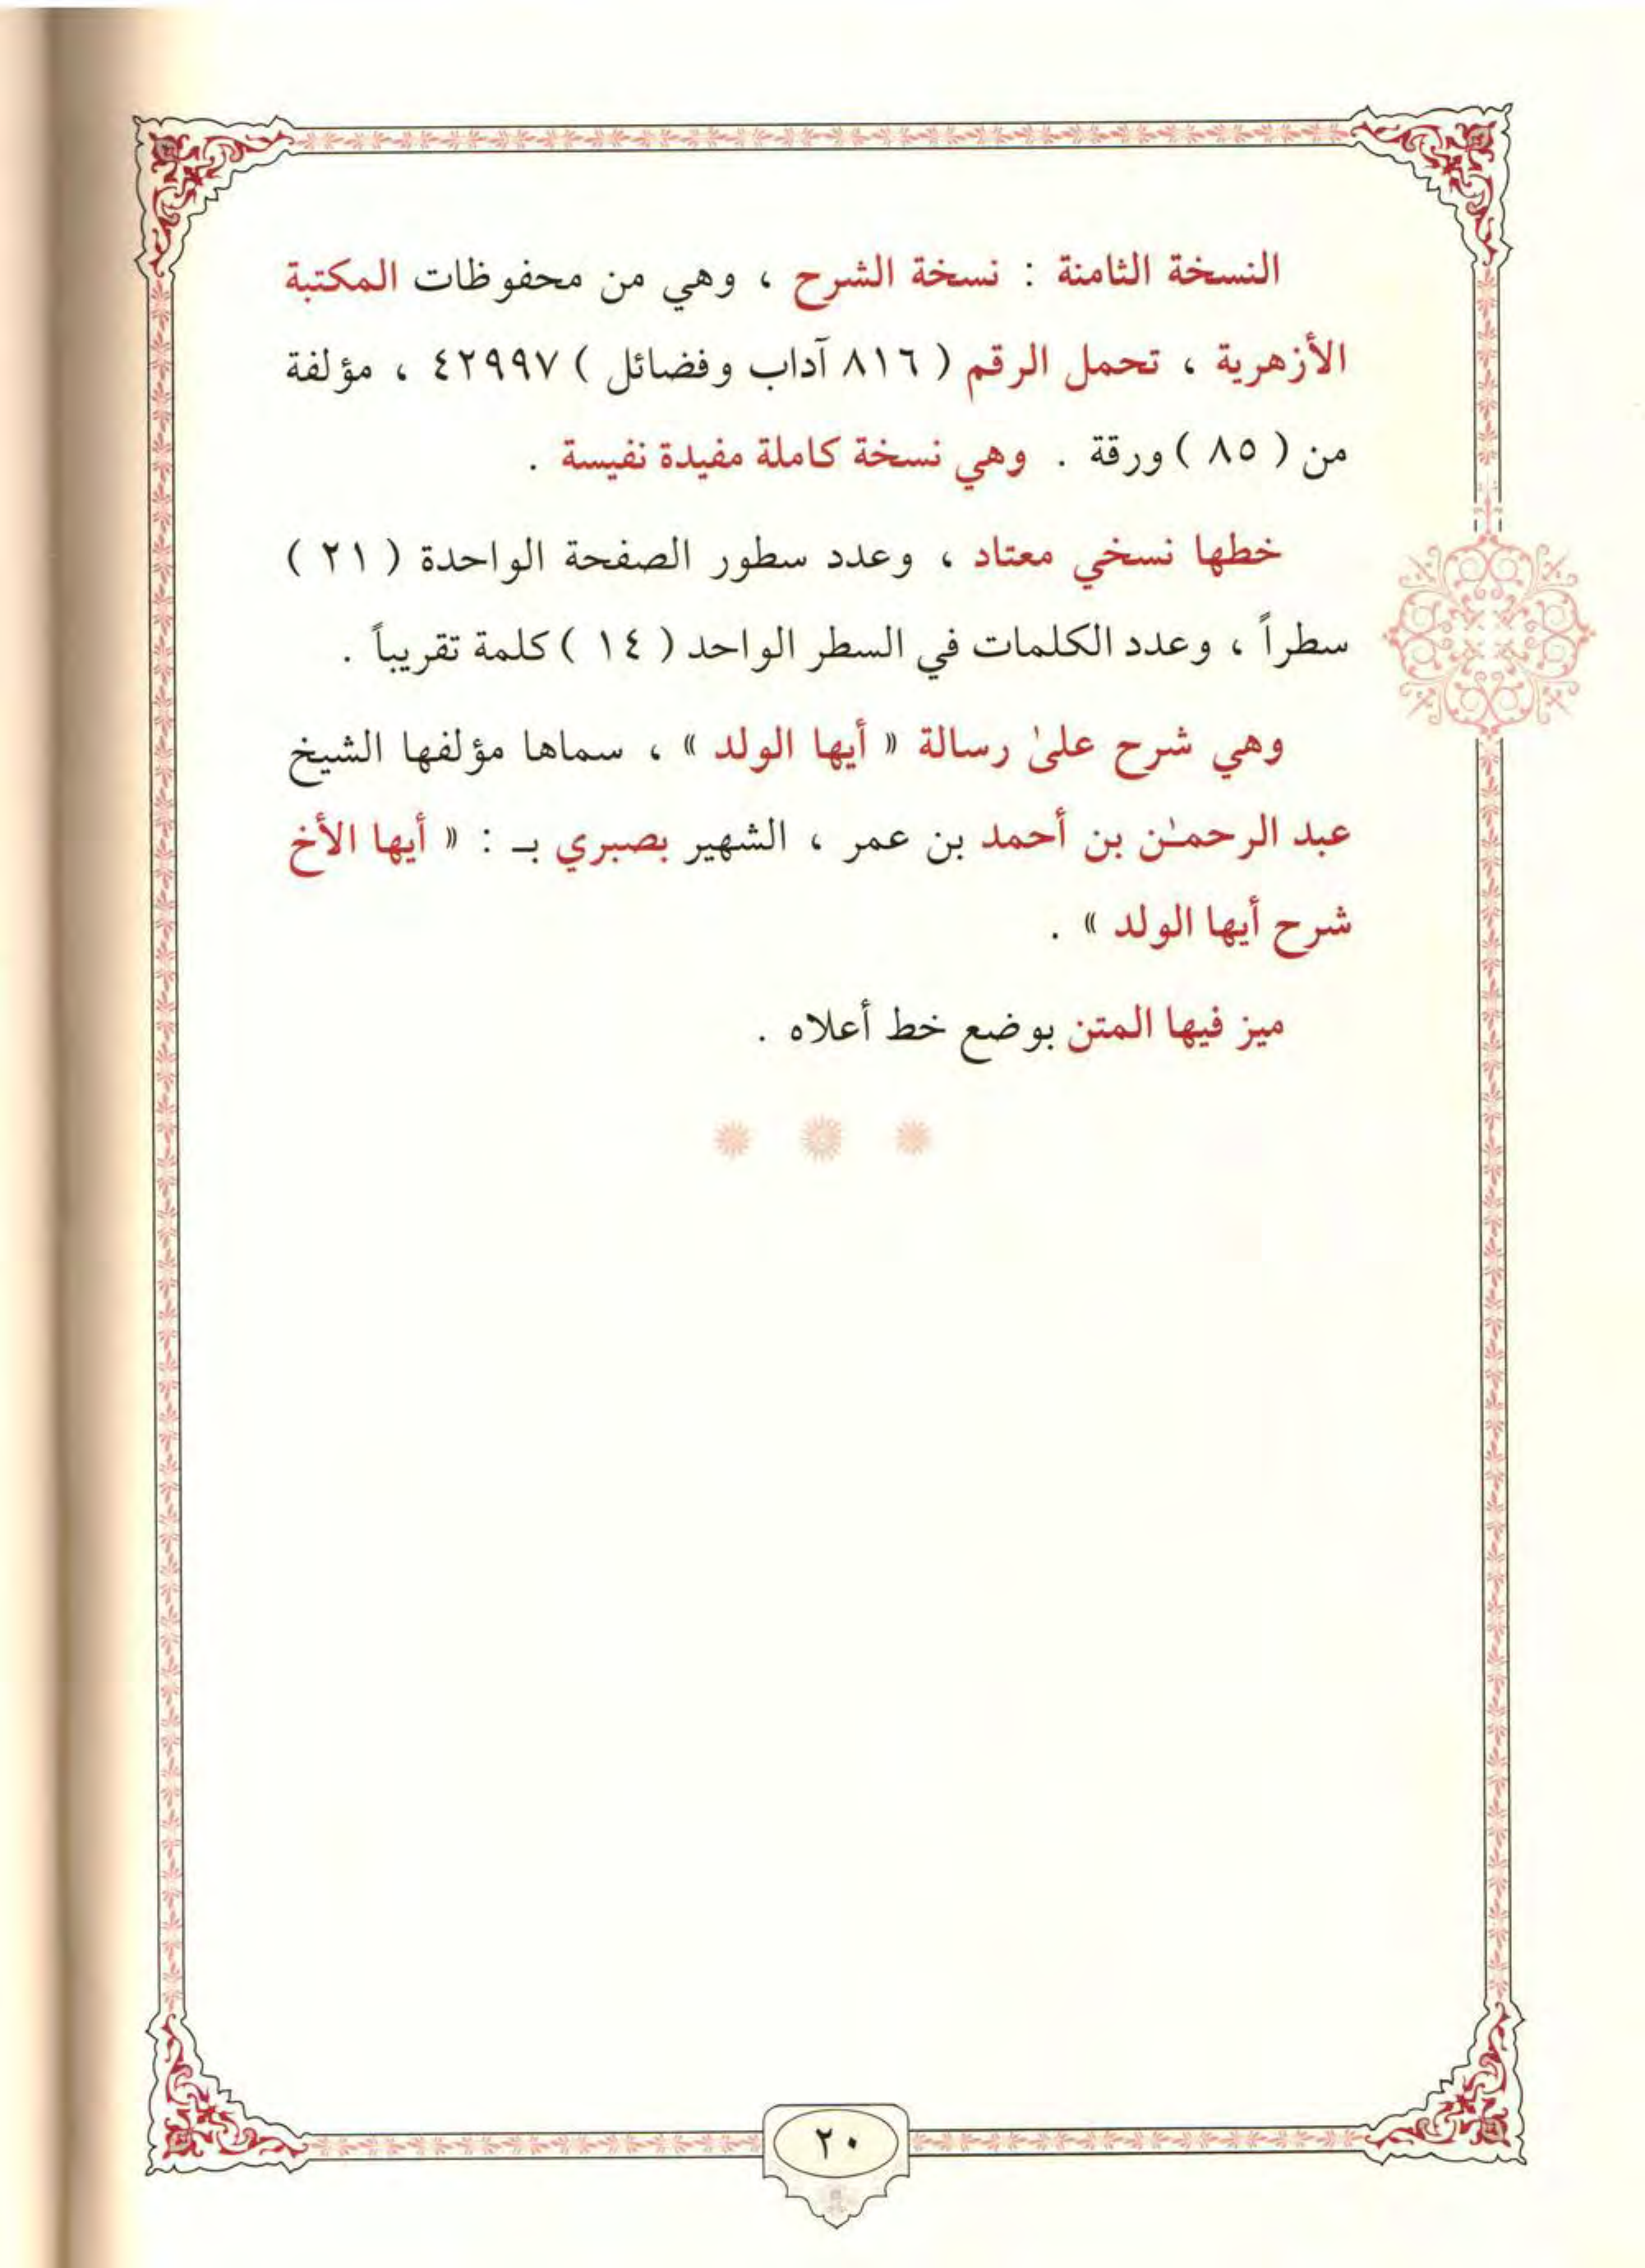 النسخة الثامنة : نسخة الشرح ، وهي من محفوظات المكتبة
الأزهرية ، تحمل الرقم ( ٨١٦ آداب وفضائل ) ٤٢٩٩٧ ، مؤلفة
من ( ٨٥ ) ورقة . وهي نسخة كاملة مفيدة نفيسة .
خطها نسخي معتاد ، وعدد سطور الصفحة الواحدة ( ٢١ )
سطراً ، وعدد الكلمات في السطر الواحد ( ١٤ ) كلمة تقريباً .
وهي شرح علىٰ رسالة « أيها الولد » ، سماها مؤلفها الشيخ
عبد الرحمـٰن بن أحمد بن عمر ، الشهير بصبري بـ : « أيها الأخ
شرح أيها الولد » .
ميز فيها المتن بوضع خط أعلاه .
٢٠